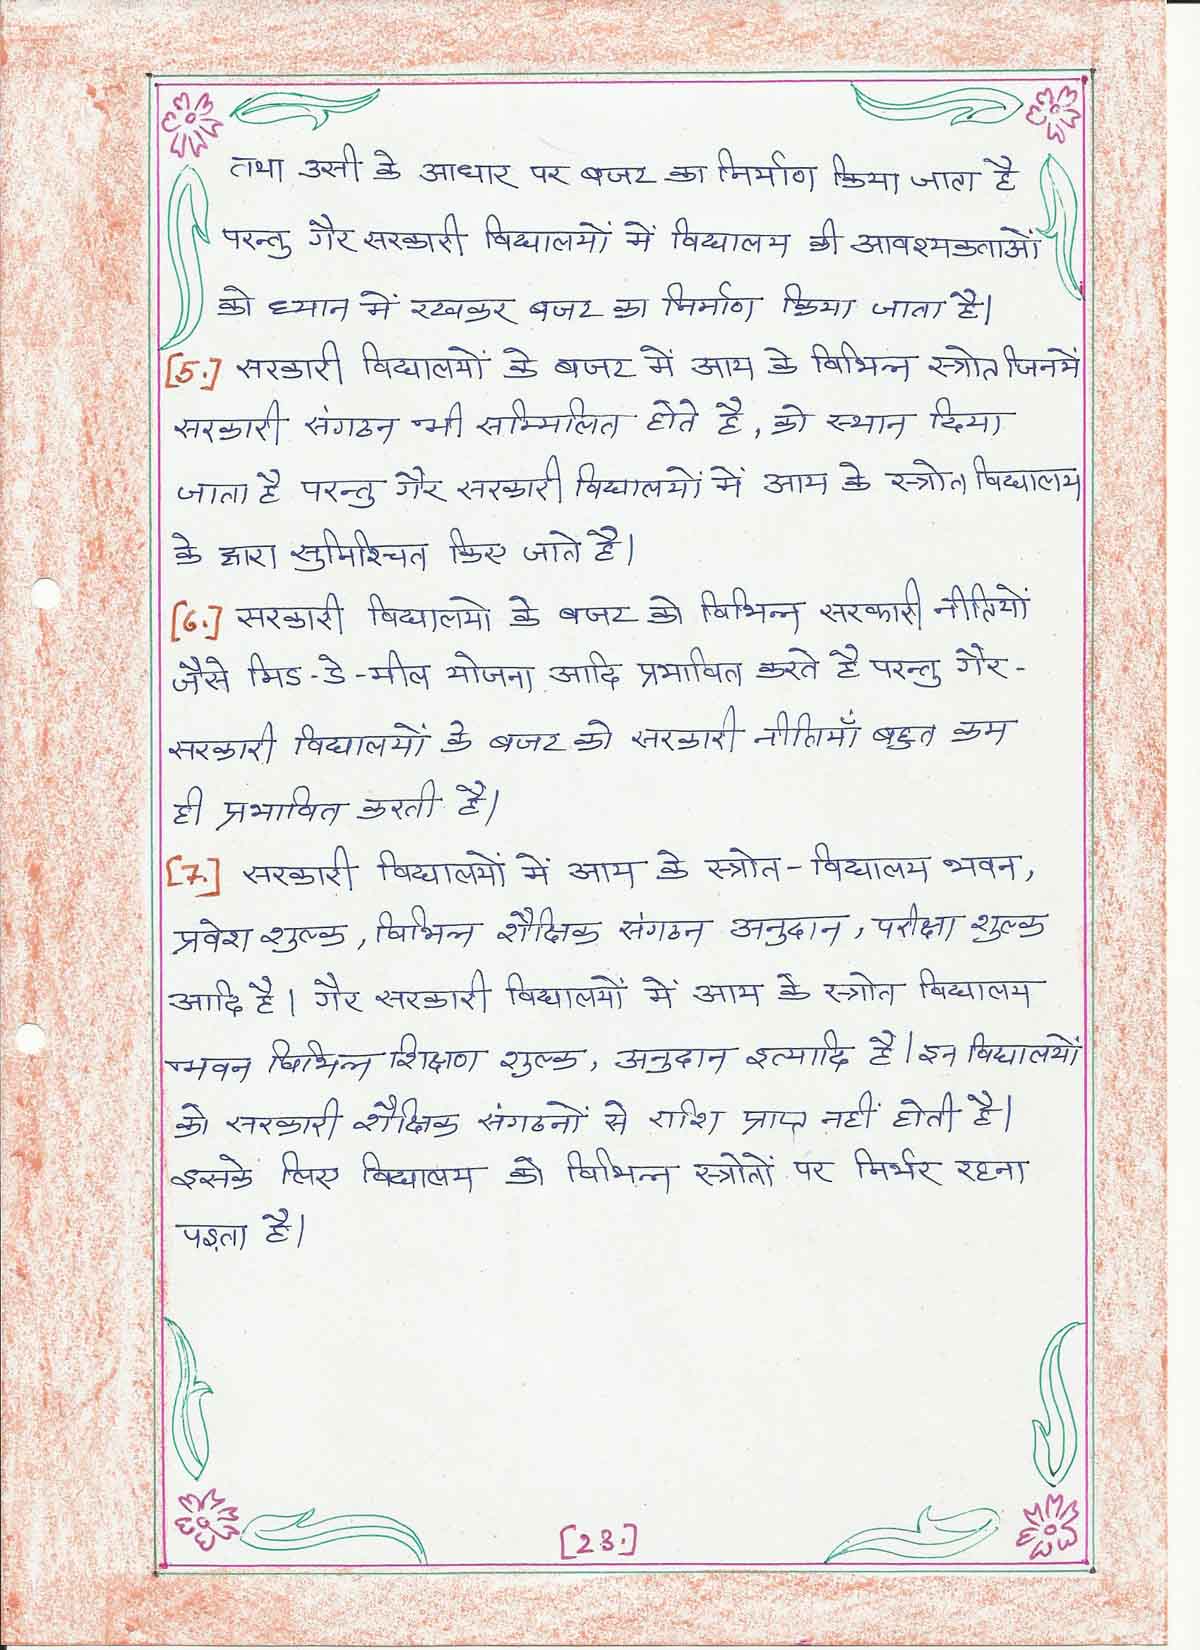 तथा उसी के आधार पर बजट का निर्माण किया जाता है
परन्तु गैर सरकारी विद्यालयों में विद्यालय की आवश्यकताओं
को ध्यान में रखकर बजट का निर्माण किया जाता है।
[5.] सरकारी विद्यालयों के बजट में आय के विभिन्न स्त्रोत जिनमें
सरकारी संगठन भी सम्मिलित होते है, को स्थान दिया
जाता है परन्तु गैर सरकारी विद्यालयों में आय के स्त्रोत विद्यालय
के द्वारा सुनिश्चित किए जाते है।
[6.] सरकारी विद्यालयो के बजट को विभिन्न सरकारी नीतियों
जैसे मिड-डे-मील योजना आदि प्रभावित करते है परन्तु गैर-
सरकारी विद्यालयों के बजट को सरकारी नीतियाँ बहुत कम
ही प्रभावित करती है।
[7.] सरकारी विद्यालयों में आय के स्त्रोत - विद्यालय भवन,
प्रवेश शुल्क, विभिन्न शैक्षिक संगठन अनुदान, परीक्षा शुल्क
आदि है। गैर सरकारी विद्यालयों में आय के स्त्रोत विद्यालय
भवन विभिन्न शिक्षण शुल्क, अनुदान इत्यादि है। इन विद्यालयों
को सरकारी शैक्षिक संगठनों से राशि प्राप्त नहीं होती है।
इसके लिए विद्यालय को विभिन्न स्त्रोतों पर निर्भर रहना
पड़ता है।
[23.]